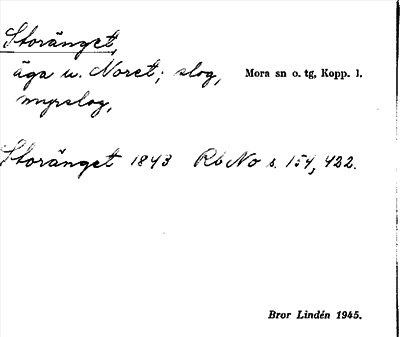 Storänget,
äga u. Noret; slog, Mora sn o. tg, Kopp. l.
myrslog,
Storänget 1843 Rb No s. 154, 422.
Bror Lindén 1945.